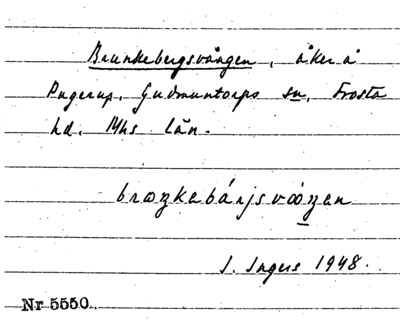 Brunkebergsvången, åker å
Pugerup, Gudmuntorps sn, Frosta
hd. Mhs län.
brωŋkebárjsvóŋen
I. Ingers 1948.
Nr 5550